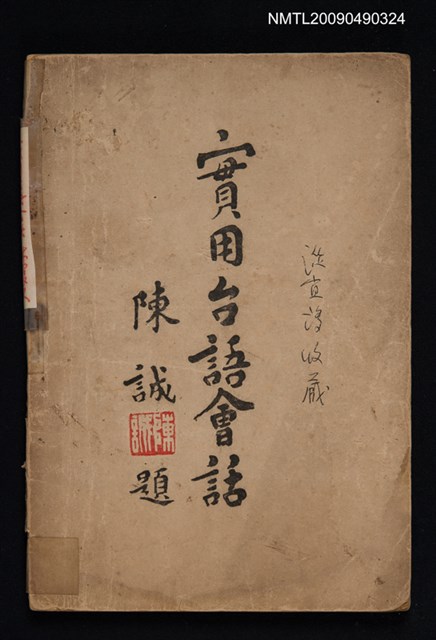 NMTL20090490324
實用台語會話
陳誠題
收藏